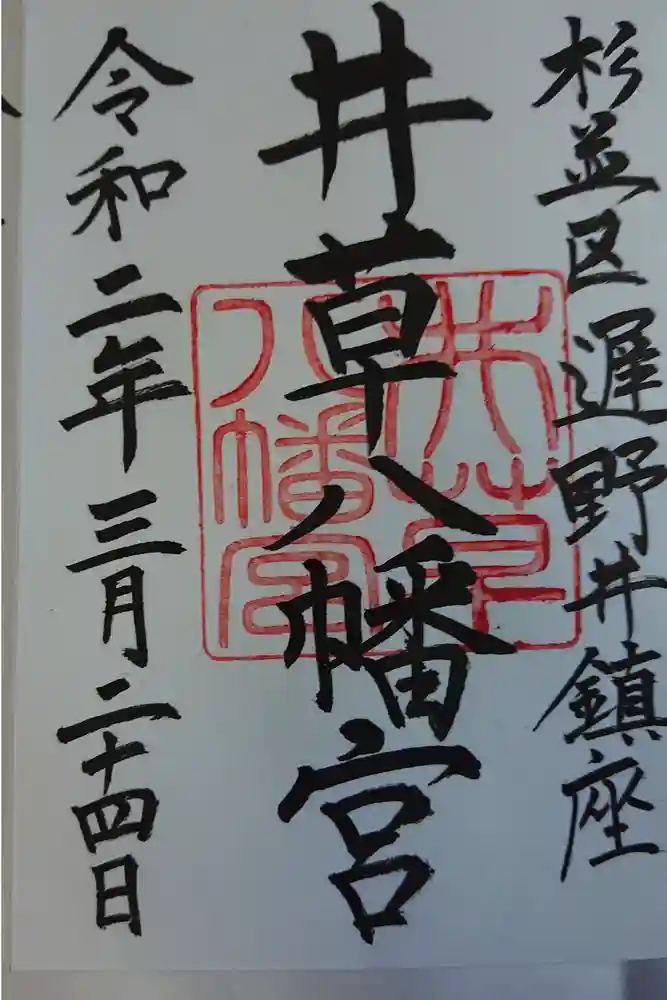 杉並区遅野井鎮座
井草八幡宮
井草
八幡宮
令和二年三月二十四日